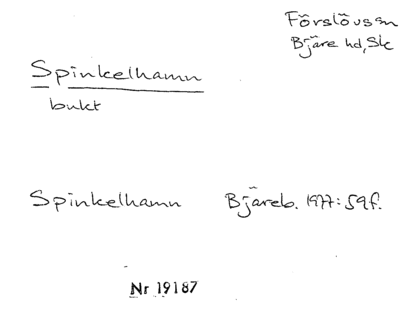 Förslövs sn
Bjäre hd, Sk
Spinkelhamn
bukt
Spinkelhamn Bjäreb. 1977:59f.
Nr 19187